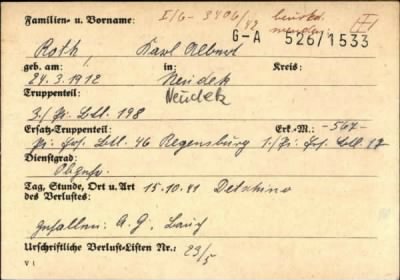 Familien- u. Vorname: I/G- 3406/42 beurkd. I
G-A 526/1533
Roth, Karl Albert
geb. am: in: Kreis:
24.3.1912 Neudek
Truppenteil: Neudek
3./Pi. Btl. 198
Ersatz-Truppenteil: Erk.-M.: -567-
Pi. Ers. Btl. 46 Regensburg 1./Pi. Ers. Btl. 17
Dienstgrad:
Obgefr.
Tag, Stunde, Ort u. Art 15.10.41 Detschino
des Verlustes:
gefallen: A.G. Bauch
Urschriftliche Verlust-Listen Nr.: 23/5
V 1